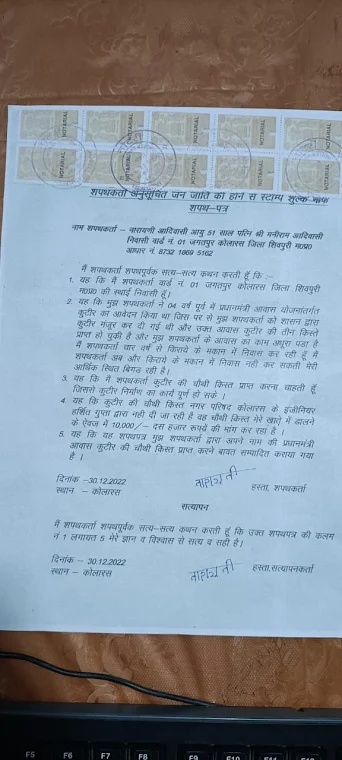 NOTARIAL NOTARIAL NOTARIAL NOTARIAL NOTARIAL
NOTARIAL NOTARIAL NOTARIAL NOTARIAL NOTARIAL
शपथकर्ता अनुसूचित जन जाति की होने से स्टाम्प शुल्क माफ
शपथ–पत्र
नाम शपथकर्ता – नारायणी आदिवासी आयु 51 साल पत्नि श्री मनीराम आदिवासी
निवासी वार्ड नं. 01 जगतपुर कोलारस जिला शिवपुरी म0प्र0
आधार नं. 8732 1869 5162
मैं शपथकर्ता शपथपूर्वक सत्य–सत्य कथन करती हूँ कि :–
1. यह कि मैं शपथकर्ता वार्ड नं. 01 जगतपुर कोलारस जिला शिवपुरी
म0प्र0 की स्थाई निवासी हूँ।
2. यह कि मुझ शपथकर्ता ने 04 वर्ष पूर्व में प्रधानमंत्री आवास योजनार्तगत
कुटीर का आवेदन किया था जिस पर से मुझ शपथकर्ता को शासन द्वारा
कुटीर मंजूर कर दी गई थी और उक्त आवास कुटीर की तीन किस्ते
प्राप्त हो चुकी है और मुझ शपथकर्ता के आवास का काम अधूरा पडा है
मैं शपथकर्ता चार वर्ष से किराये के मकान में निवास कर रही हूँ मैं
शपथकर्ता अब और किराये के मकान में निवास नही कर सकती मेरी
आर्थिक स्थित बिगड रही है।
3. यह कि मैं शपथकर्ता कुटीर की चौथी किस्त प्राप्त करना चाहती हूँ
जिससे कुटीर निर्माण का कार्य पूर्ण हो सके ।
4. यह कि कुटीर की चौथी किस्त नगर परिषद कोलारस के इंजीनियर
हर्षित गुप्ता द्वारा नही दी जा रही है वह चौथी किस्त मेरे खाते में डालने
के ऐवज में 10,000/– दस हजार रूपये की मांग कर रहा है ।
5. यह कि यह शपथपत्र मुझ शपथकर्ता द्वारा अपने नाम की प्रधानमंत्री
आवास कुटीर की चौथी किस्त प्राप्त करने बावत सम्पादित कराया गया
है ।
दिनांक –30.12.2022
स्थान – कोलारस
हस्ता, शपथकर्ता
सत्यापन
मैं शपथकर्ता शपथपूर्वक सत्य–सत्य कथन करती हूँ कि उक्त शपथपत्र की कलम
नं 1 लगायत 5 मेरे ज्ञान व विश्वास से सत्य व सही है।
दिनांक – 30.12.2022
स्थान – कोलारस
हस्ता,सत्यापनकर्ता
F5 F6 F7 F8 F9 F10 F11 F12